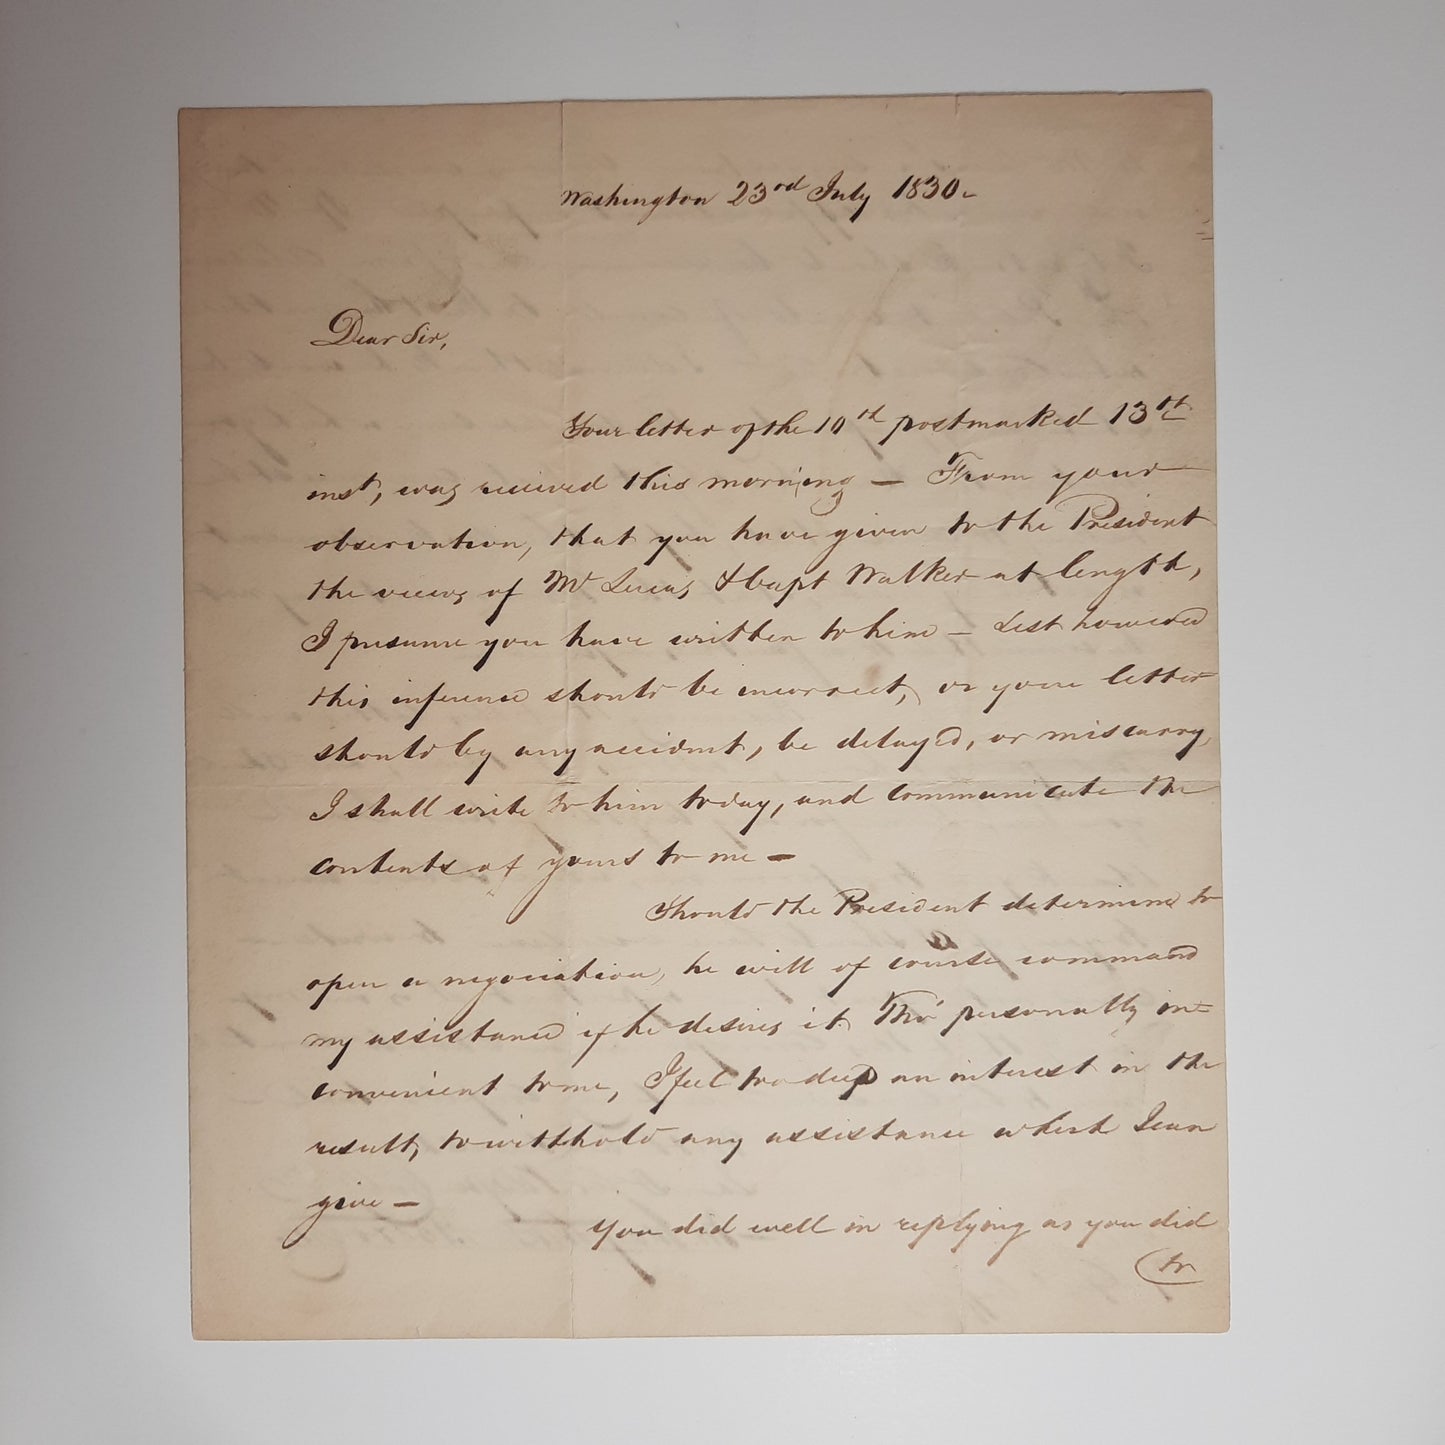 Washington 23rd July 1830.
Dear Sir,
Your letter of the 10th postmarked 13th
inst, was received this morning — From your
observation, that you have given to the President
the views of Mr Lucas & Capt Walker at length,
I presume you have written to him — Lest however
this inference should be incorrect, or your letter
should by any accident, be delayed, or miscarry,
I shall write to him today, and communicate the
contents of yours to me —
Should the President determine to
open a negociation, he will of course command
my assistance if he desires it. Tho' personally in=
convenient to me, I feel too deep an interest in the
result, to withhold any assistance which I can
give —
You did well in replying as you did
to